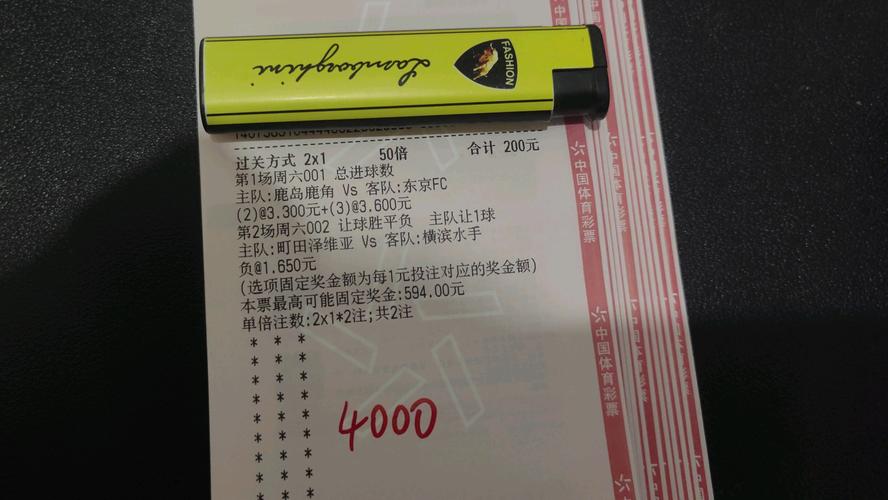 Lamborghini
FASHION
过关方式 2x1 50倍 合计 200元
第1场周六001 总进球数
主队:鹿岛鹿角 Vs 客队:东京FC
(2)@3.300元+(3)@3.600元
第2场周六002 让球胜平负 主队让1球
主队:町田泽维亚 Vs 客队:横滨水手
负@1.650元
(选项固定奖金额为每1元投注对应的奖金额)
本票最高可能固定奖金:594.00元
单倍注数:2x1*2注;共2注
* * *
* * *
* * *
* * *
* * *
* * *
* * *
* * *
* * *
4000
中国体育彩票
中国体育彩票